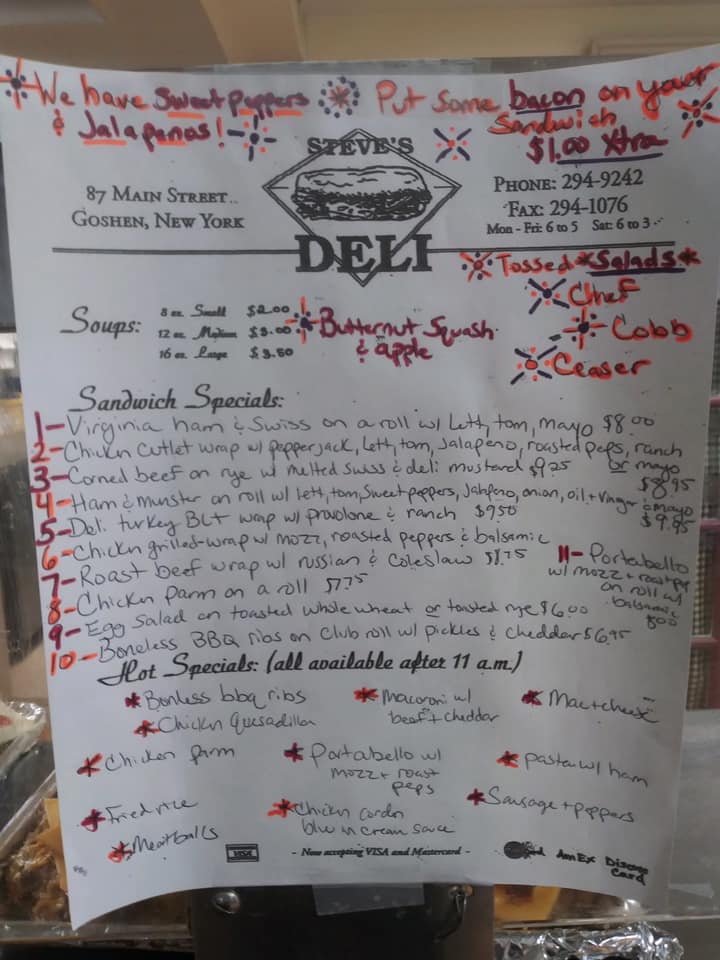 We have Sweet Peppers
& Jalapenos!
Put some bacon on your
Sandwich
$1.00 Xtra
STEVE'S
DELI
87 MAIN STREET
GOSHEN, NEW YORK
PHONE: 294-9242
FAX: 294-1076
Mon - Fri: 6 to 5 Sat: 6 to 3
Tossed *Salads*
Chef
Cobb
Ceaser
Soups:
8 oz. Small $2.00
12 oz. Medium $3.00
16 oz. Large $3.50
Butternut Squash
& apple
Sandwich Specials:
1- Virginia ham & Swiss on a roll w/ Lett, tom, mayo $8.00
2- Chicken Cutlet wrap w/ pepperjack, lett, tom, Jalapeno, roasted peps, ranch
or mayo
$8.95
3- Corned beef on rye w/ melted swiss & deli mustard $9.25
4- Ham & munster on roll w/ lett, tom, sweet peppers, Jalapeno, onion, oil + vinegar & mayo
$9.95
5- Deli turkey BLT wrap w/ provolone & ranch $9.50
6- Chickn grilled-wrap w/ mozz, roasted peppers & balsamic
7- Roast beef wrap w/ russian & coleslaw $8.75
8- Chicken parm on a roll $7.75
9- Egg Salad on toasted whole wheat or toasted rye $6.00
10- Boneless BBQ ribs on Club roll w/ pickles & cheddar $6.95
11- Portabello
w/ mozz + roast pep
on roll w/
balsamic
8.00
Hot Specials: (all available after 11 a.m.)
* Bonless bbq ribs
* Macaroni w/
beef + cheddar
* Mac + cheese
* Chickn Quesadilla
* Chicken parm
* Portabello w/
mozz + roast
peps
* pasta w/ ham
* Fried rice
* Chickn cordn
blu in cream sauce
* Sausage + peppers
* Meatballs
VISA
- Now accepting VISA and Mastercard -
AmEx Discover
Card